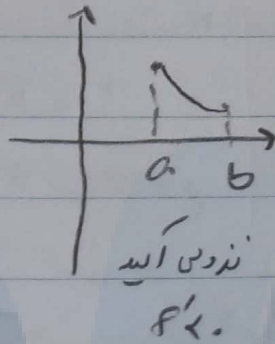 a b
نزولی اکید
f'<0